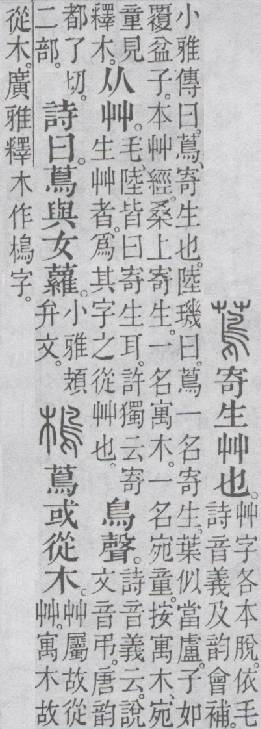 蔦寄生艸也。
艸字各本脫。依毛
詩音義及韵會補。
小雅傳曰。蔦、寄生也。陸璣曰。蔦一名寄生。葉似當盧。子如
覆盆子。本艸經。桑上寄生。一名寓木。一名宛童。按寓木、宛
童見
釋木。
从艸。
毛陸皆曰寄生耳。許獨云寄
生艸者。爲其字之從艸也。
鳥聲。
詩音義云。說
文音弔。唐韵
都了切。
二部。
詩曰。蔦與女蘿。
小雅頍
弁文。
樢蔦或从木。
艸屬故從
艸。寓木故
從木。廣雅釋
木作樢字。